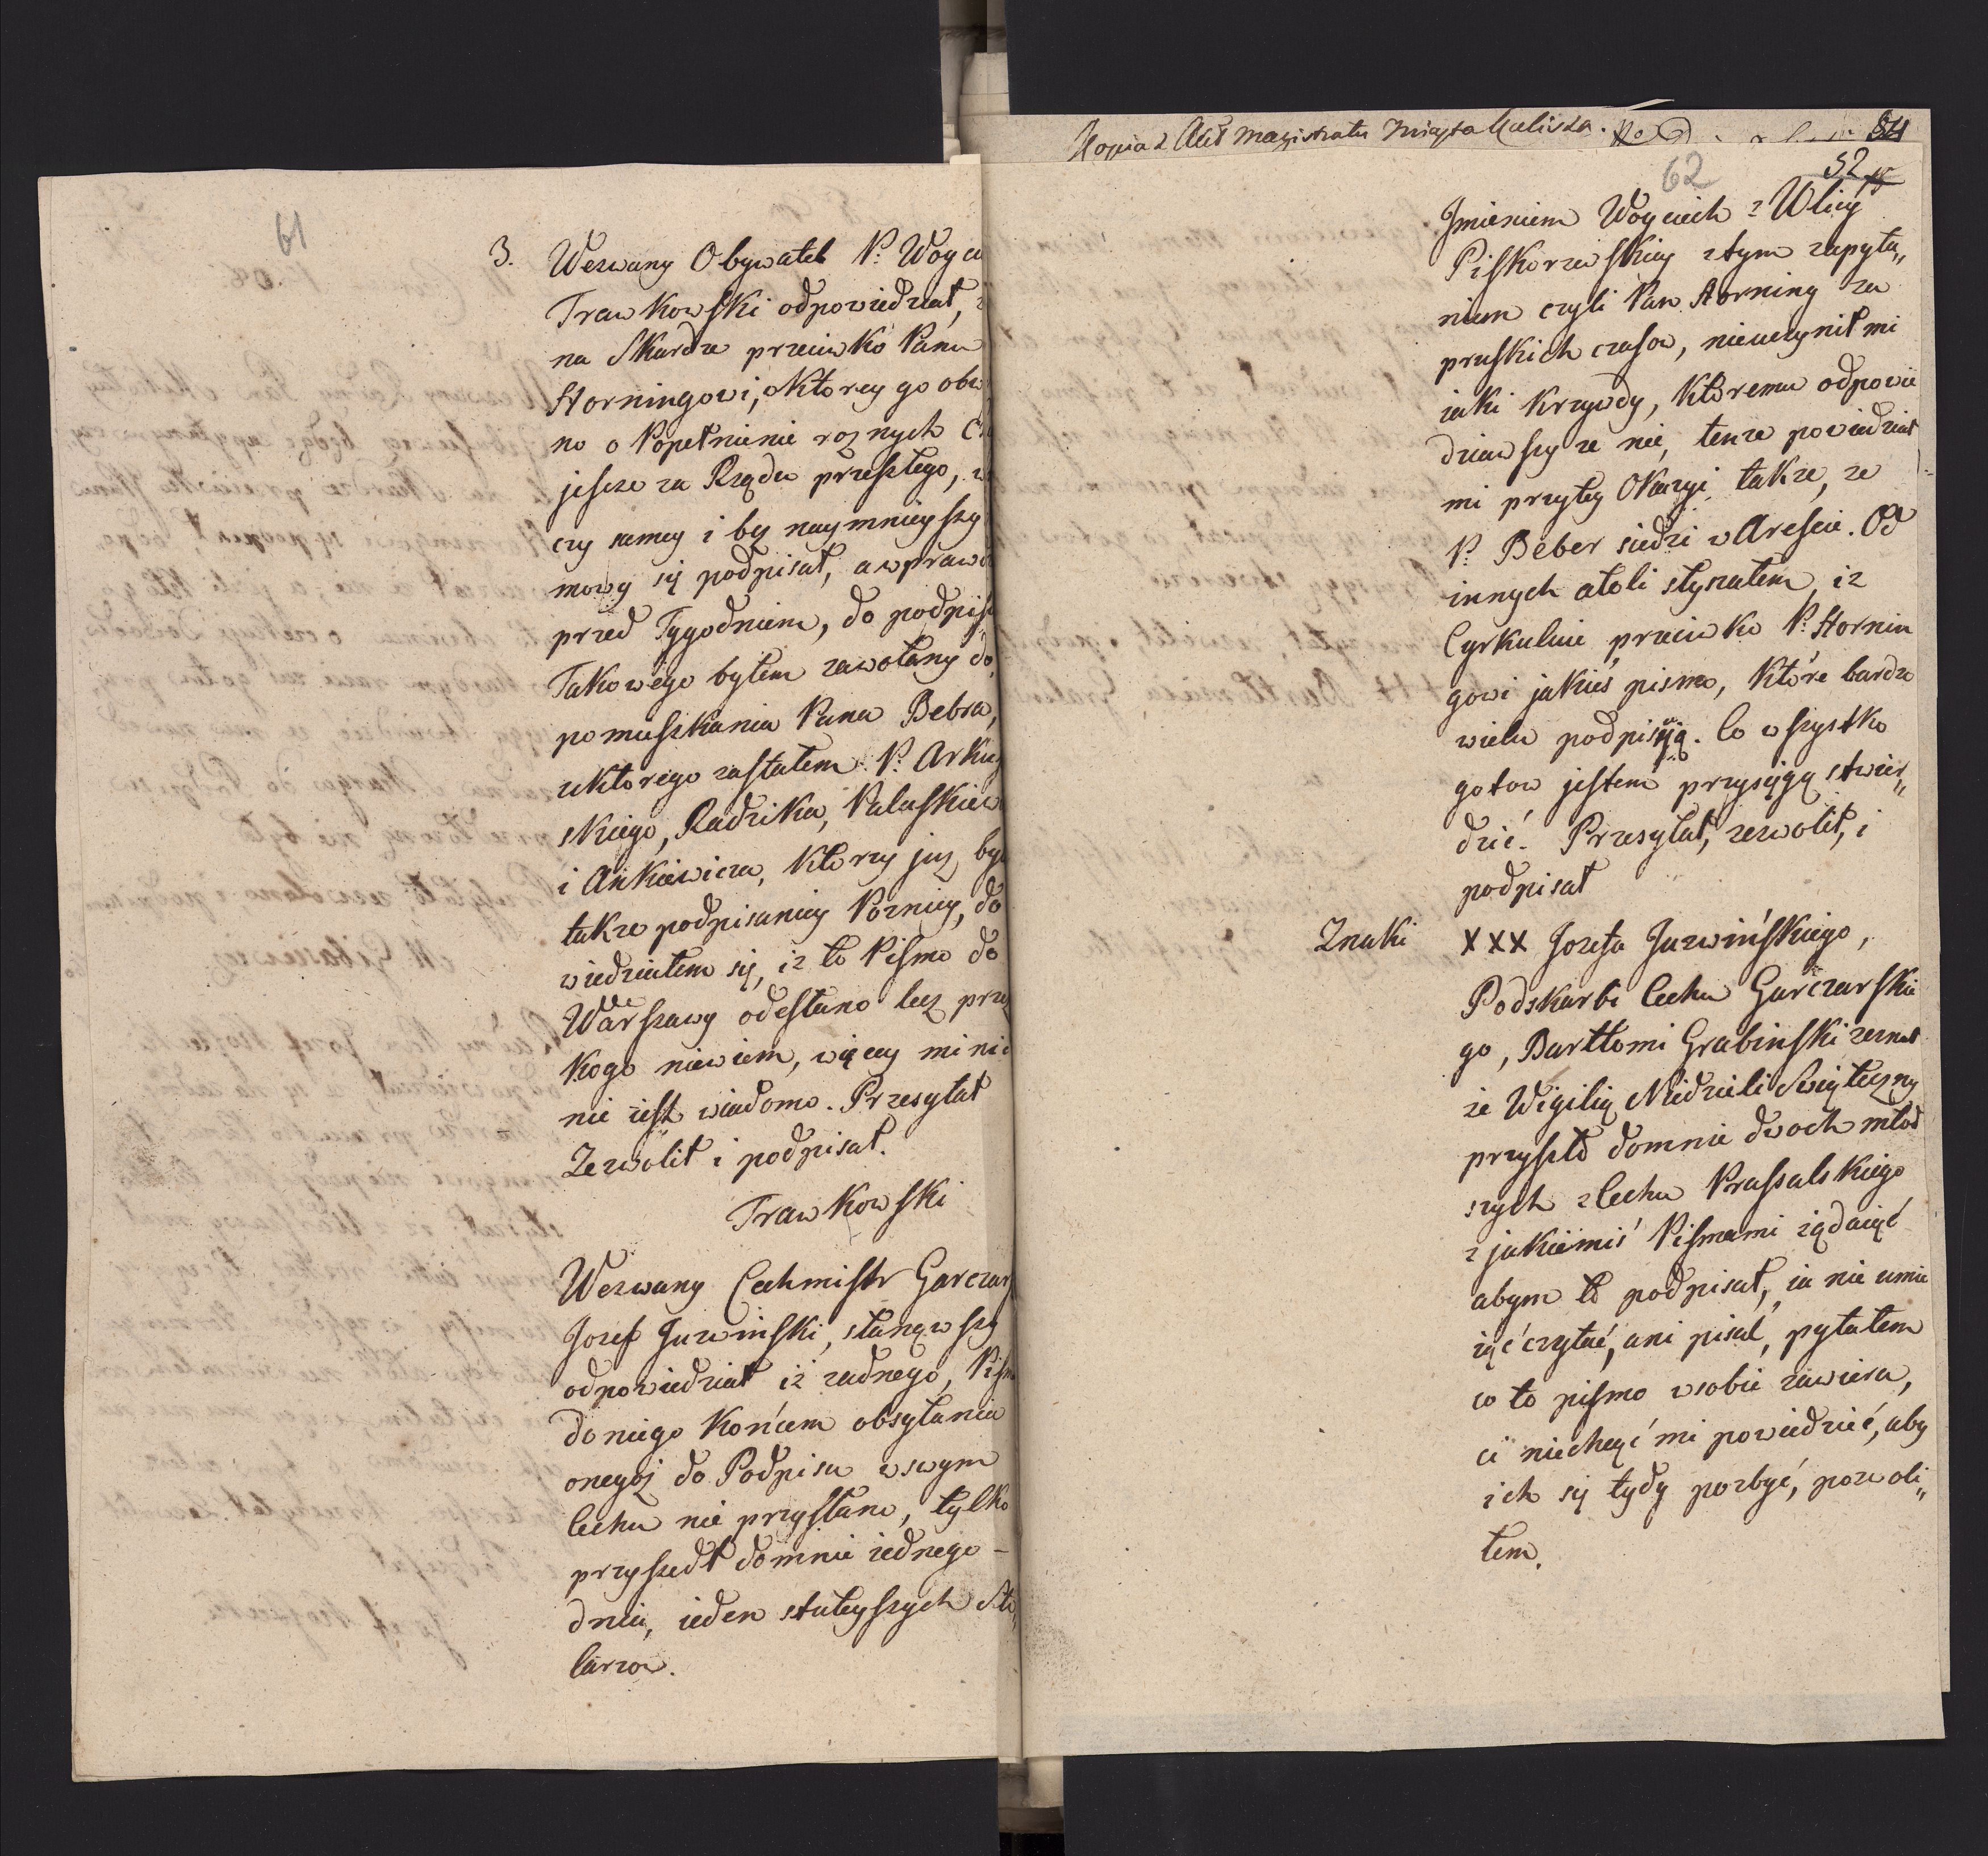 61
3. Wezwany Obywatel P. Woyci
Trawkowski odpowiedział,
na Skardze przeciwko Panu
Horningowi, o ktorey go obw
no o Popełnienie roznych
jescze za Rządu przeszłego,
czy samey i bez naymnieyszy
mowy się podpisał, a wprawd
przed Tygodniem, do podpis
Takowego byłem zawołany do
pomieszkania Pana Bebra,
u ktorego zastałem P. Arkus
skiego, Radzika, Paluskiew
i Ankiewicza, ktorzy juz byl
takze podpisaniey Pozniey, do
wiedziałem się, iz to Pismo do
Warszawy odesłano lecz prze
kogo niewiem, więcey mi nic
nie iest wiadomo. Przesytał
Zezwolił i podpisał.
Trawkowski
Wezwany Cechmistr Garczar
Jozef Juzwinski, stanąwszy
odpowiedział iż zadnego, Pism
do niego Końcem obsyłania
onegoż do Podpisu w swym
Cechu nie przysłano, tylko
przyszedł domnie iednego
dnia, ieden z tuteyszych Sto„
larzow.
Kopia z Akt Magistratu Miasta Kalisza.
84
62
52
Jmieniem Woyciech z Ulicy
Piskorzewskiey z tym zapyta„
niem czyli Pan Horning za
pruskich czasow, nieuczynił mi
iaki krzywdy, ktoremu odpowie
dziawszy ze nie, tenze powiedział
mi przytey Okazyi takze, ze
P. Beber siedzi w Areście. Od
innych atoli słyszałem, iz
Cyrkuluie przeciwko P. Hornin
gowi jakieś pismo, ktőre bardzo
wielu podpisuią. Co wszystko
gotow jestem przysięgą stwier„
dzić. Przesytał, zezwolił, i
podpisał
Znaki XXX Jozefa Juzwińskiego,
Podskarbi Cechu Garczarskie
go, Bartłomi Grabinski zeznał
ze Wigilią Niedzieli Swiąteczny
przyszło domnie dwoch młod
szych z Cechu Prassalskiego
z jakiemiś Pismami żądaiąć
abym to podpisał, ia nie umie
iąć czytać, ani pisać, pytałem
co to pismo w sobie zawiera,
ci niechcąć mi powiedzieć, aby
ich się tydy pozbyć, pozwoli„
łem.